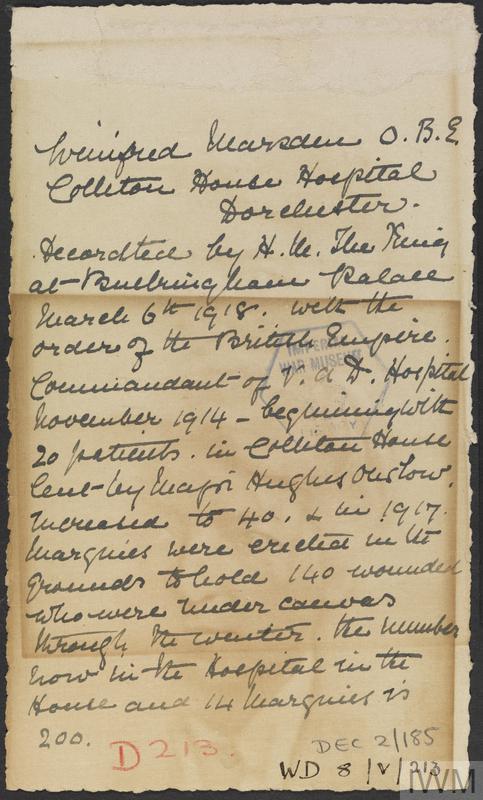 Winifred Marsden O.B.E.
Colliton House Hospital
Dorchester.
Decordted by H.M. The King
at Buckingham Palace
March 6th 1918. with the
order of the British Empire.
Commandant of V.A.D. Hospital
November 1914 - beginning with
20 patients. in Colliton House
lent by Major Hughes Onslow.
Increased to 40. & in 1917.
Marquies were erected in the
grounds to hold 140 wounded
who were under canvas
through the winter. the number
now in the Hospital in the
House and 14 Marquies is
200.
IMPERIAL
WAR MUSEUM
LIBRARY
D213.
DEC 2/185
WD 8/V/213
IWM